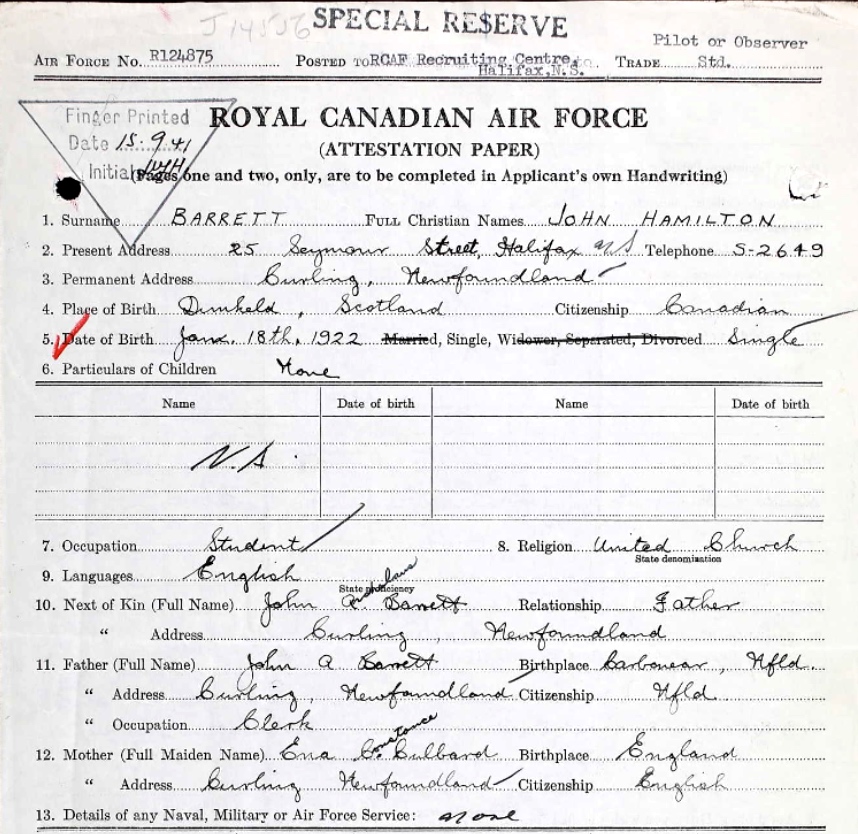 J14536 SPECIAL RESERVE
Pilot or Observer
AIR FORCE NO. R124875 POSTED TO RCAF Recruiting Centre, TRADE Std.
Halifax, N.S.
Finger Printed ROYAL CANADIAN AIR FORCE
Date 15.9.41 (ATTESTATION PAPER)
Initial (Pages one and two, only, are to be completed in Applicant's own Handwriting)
1. Surname BARRETT FULL Christian Names JOHN HAMILTON
2. Present Address 25 Seymour Street, Halifax NS Telephone 5-2649
3. Permanent Address Curling, Newfoundland
4. Place of Birth Dunkeld, Scotland Citizenship Canadian
5. Date of Birth Jan. 18th, 1922 Married, Single, Widower, Separated, Divorced Single
6. Particulars of Children None
Name Date of birth Name Date of birth
N.A.
7. Occupation Student 8. Religion United Church
State denomination
9. Languages English
State proficiency
10. Next of Kin (Full Name) John A. Barrett Relationship Father
" Address Curling, Newfoundland
11. Father (Full Name) John A Barrett Birthplace Carbonear, Nfld.
" Address Curling, Newfoundland Citizenship Nfld
" Occupation Clerk
12. Mother (Full Maiden Name) Ena C. Constance Culbard Birthplace England
" Address Curling Newfoundland Citizenship English
13. Details of any Naval, Military or Air Force Service: None